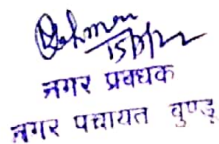 15/7/22
नगर प्रबंधक
नगर पंचायत बुण्डू